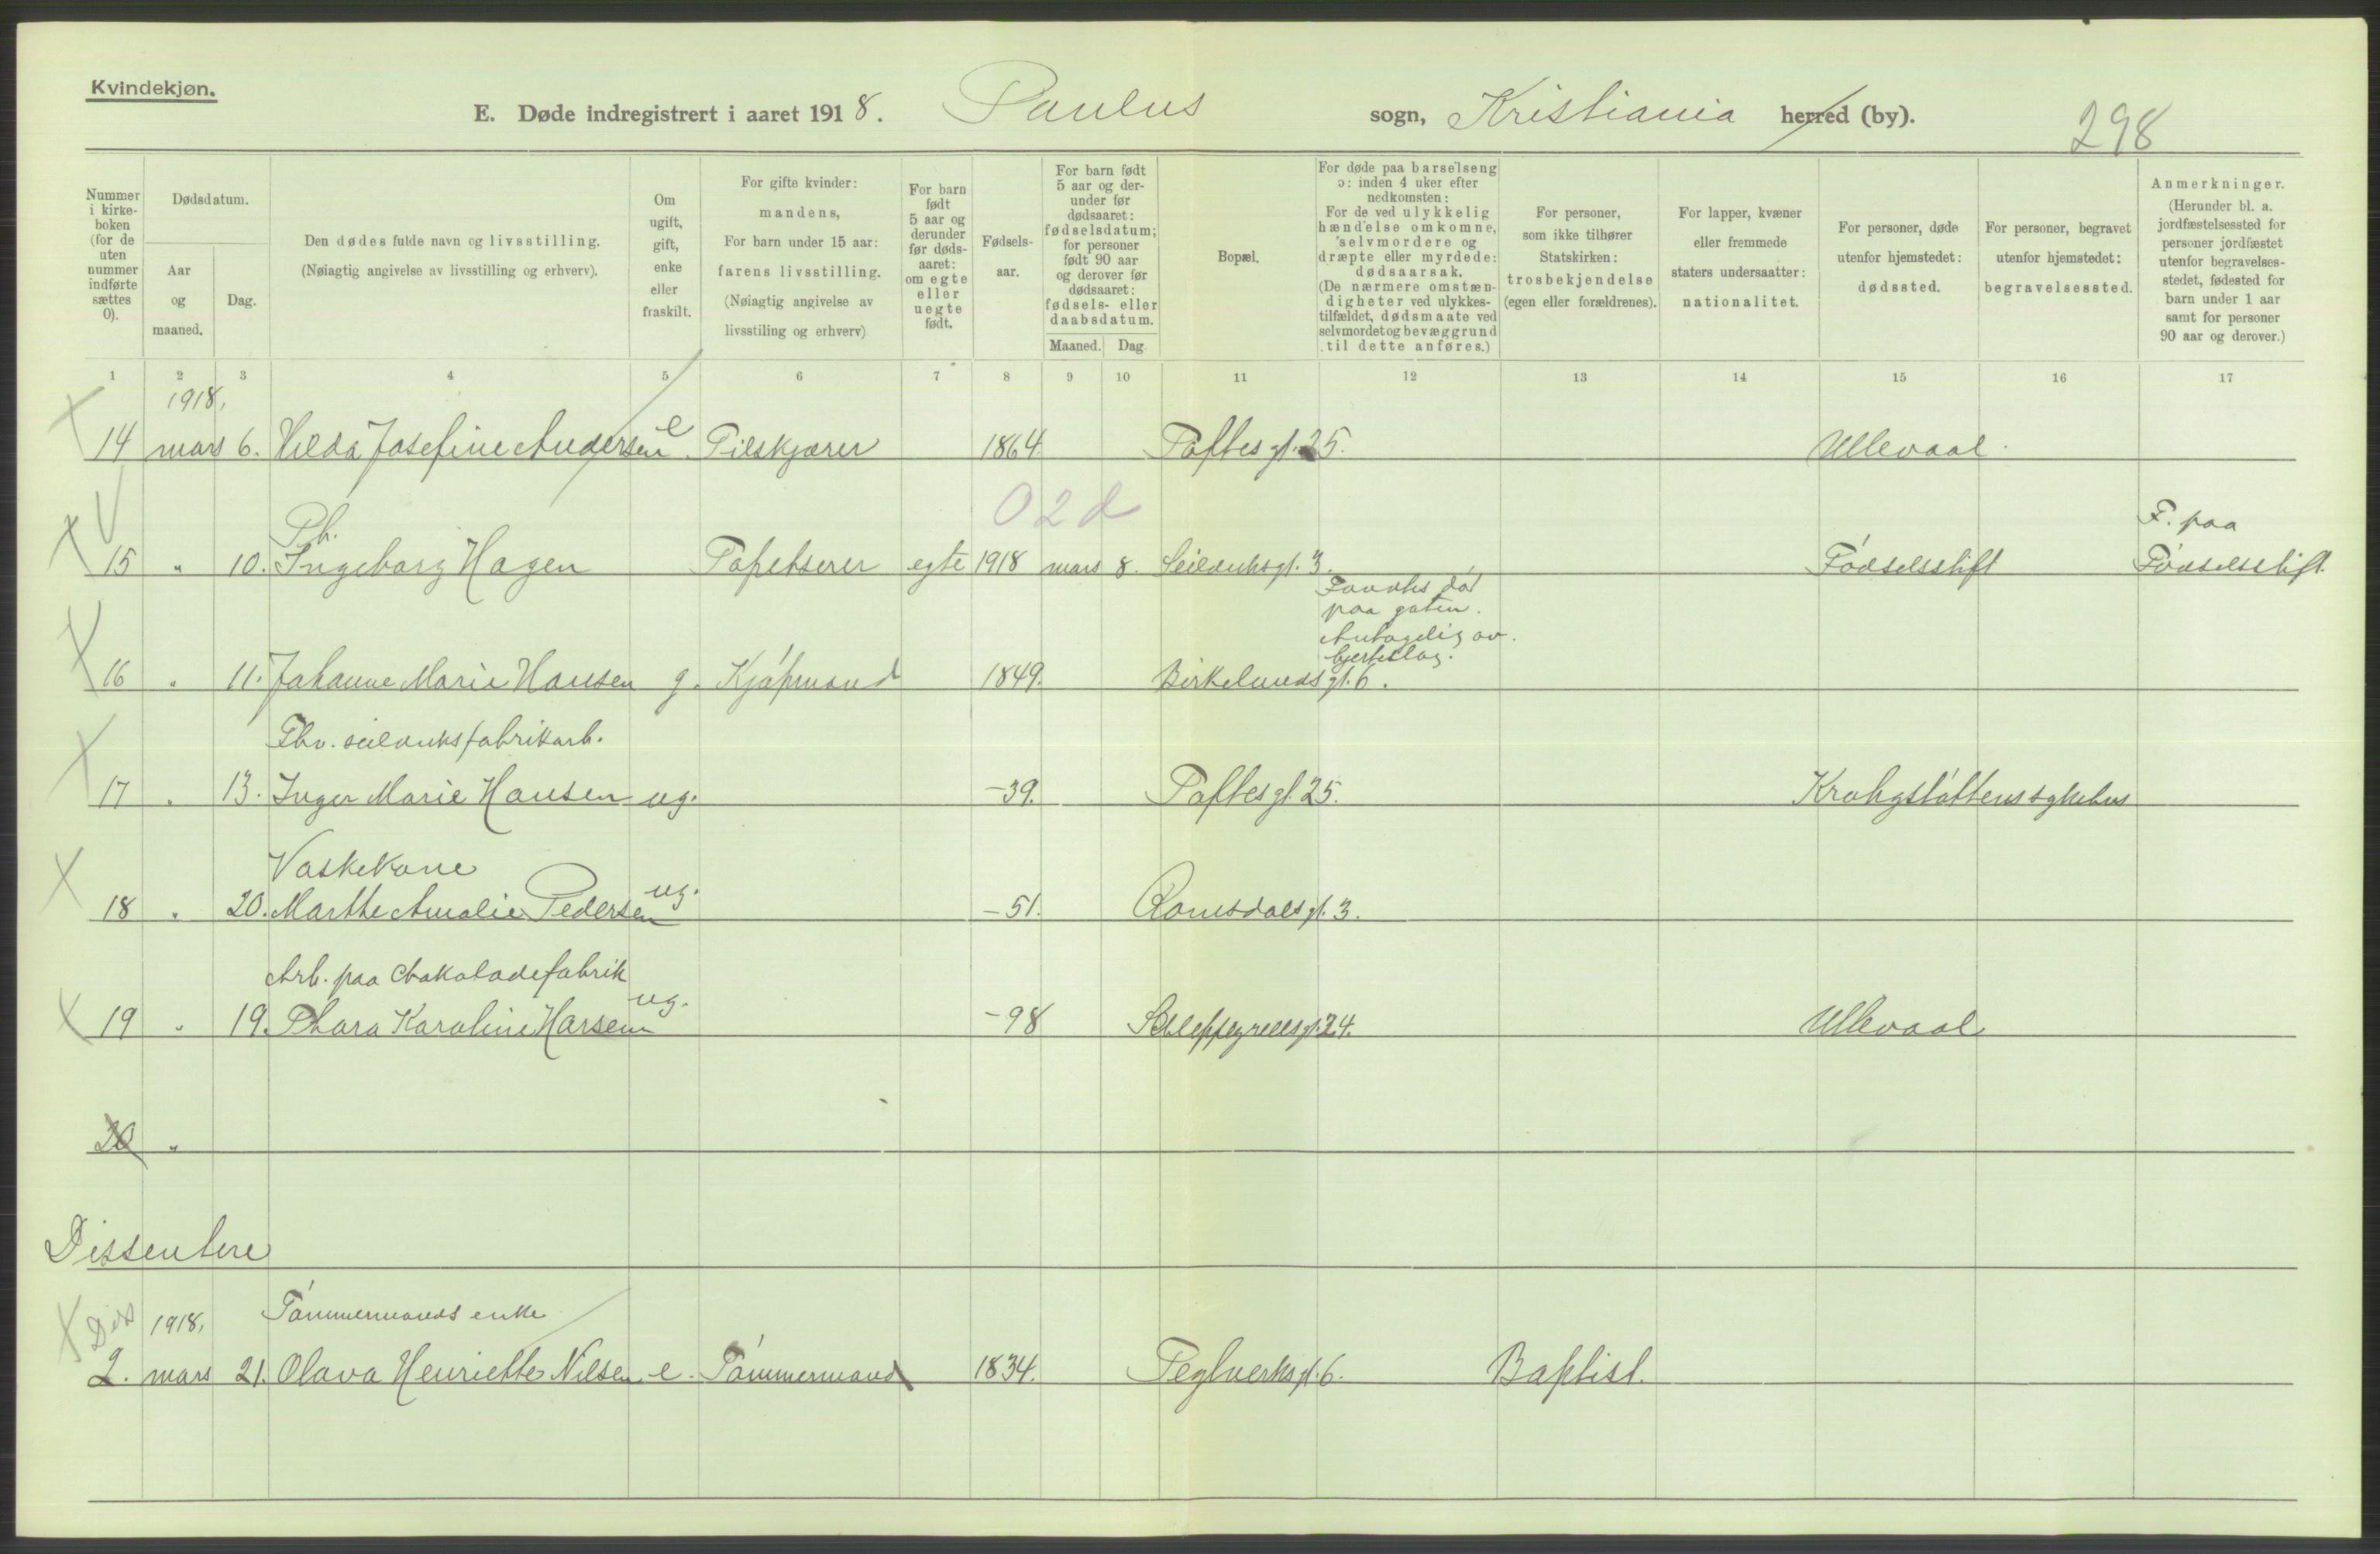 Kvindekjøn.
E. Døde indregistrert i aaret 1918. Paulus sogn, Kristiania herred (by). 298
Nummer i kirkeboken (for de uten nummer indførte sættes 0).
Dødsdatum.
Aar og maaned.
Dag.
Den dødes fulde navn og livsstilling.
(Nøiagtig angivelse av livsstilling og erhverv).
Om ugift, gift, enke eller fraskilt.
For gifte kvinder: mandens,
For barn under 15 aar: farens livsstilling.
(Nøiagtig angivelse av livsstiling og erhverv)
For barn født 5 aar og derunder før dødsaaret: om egte eller uegte født.
Fødselsaar.
For barn født 5 aar og derunder før dødsaaret: fødselsdatum; for personer født 90 aar og derover før dødsaaret: fødsels- eller daabsdatum.
Maaned. Dag
Bopæl.
For døde paa barselseng ɔ: inden 4 uker efter nedkomsten:
For de ved ulykkelig hændelse omkomne, selvmordere og dræpte eller myrdede: dødsaarsak.
(De nærmere omstændigheter ved ulykkestilfældet, dødsmaate ved selvmordet og bevæggrund til dette anføres.)
For personer, som ikke tilhører Statskirken: trosbekjendelse (egen eller forældrenes).
For lapper, kvæner eller fremmede staters undersaatter: nationalitet.
For personer, døde utenfor hjemstedet: dødssted.
For personer, begravet utenfor hjemstedet: begravelsessted.
Anmerkninger.
(Herunder bl. a. jordfæstelsessted for personer jordfæstet utenfor begravelsesstedet, fødested for barn under 1 aar samt for personer 90 aar og derover.)
1 2 3 4 5 6 7 8 9 10 11 12 13 14 15 16 17
1918,
14 mars 6. Hilda Josefine Andersen e Pilskjærer 1864. Toftes gt. 25. Ullevaal.
02d
Ph. F. paa
15 " 10. Ingeborg Hagen Tapetserer egte 1918 mars 8. Seilduksgt. 3. Födselsstift Födselsstift.
Fandtes död
paa gaten.
Antagelig av
hjerteslag.
16 " 11. Johanne Marie Hansen g. Kjöpmand 1849. Birkelundsgt. 6.
Fhv. seilduksfabrikarb.
17 " 13. Inger Marie Hansen ug. -39. Toftesgt. 25. Krohgstöttens sykehus
Vaskekone
18 " 20. Marthe Amalie Pedersen ug. -51. Romsdalsgt. 3.
Arb. paa Chokoladefabrik
19 " 19. Thora Karoline Larsen ug. -98 Schleppegrellsgt. 24. Ullevaal
20 "
Dissentere
Dis 1918, Tömmermands enke
2. mars 21. Olava Henriette Nilsen e. Tömmermand 1834. Teglverksgt. 6. Baptist.